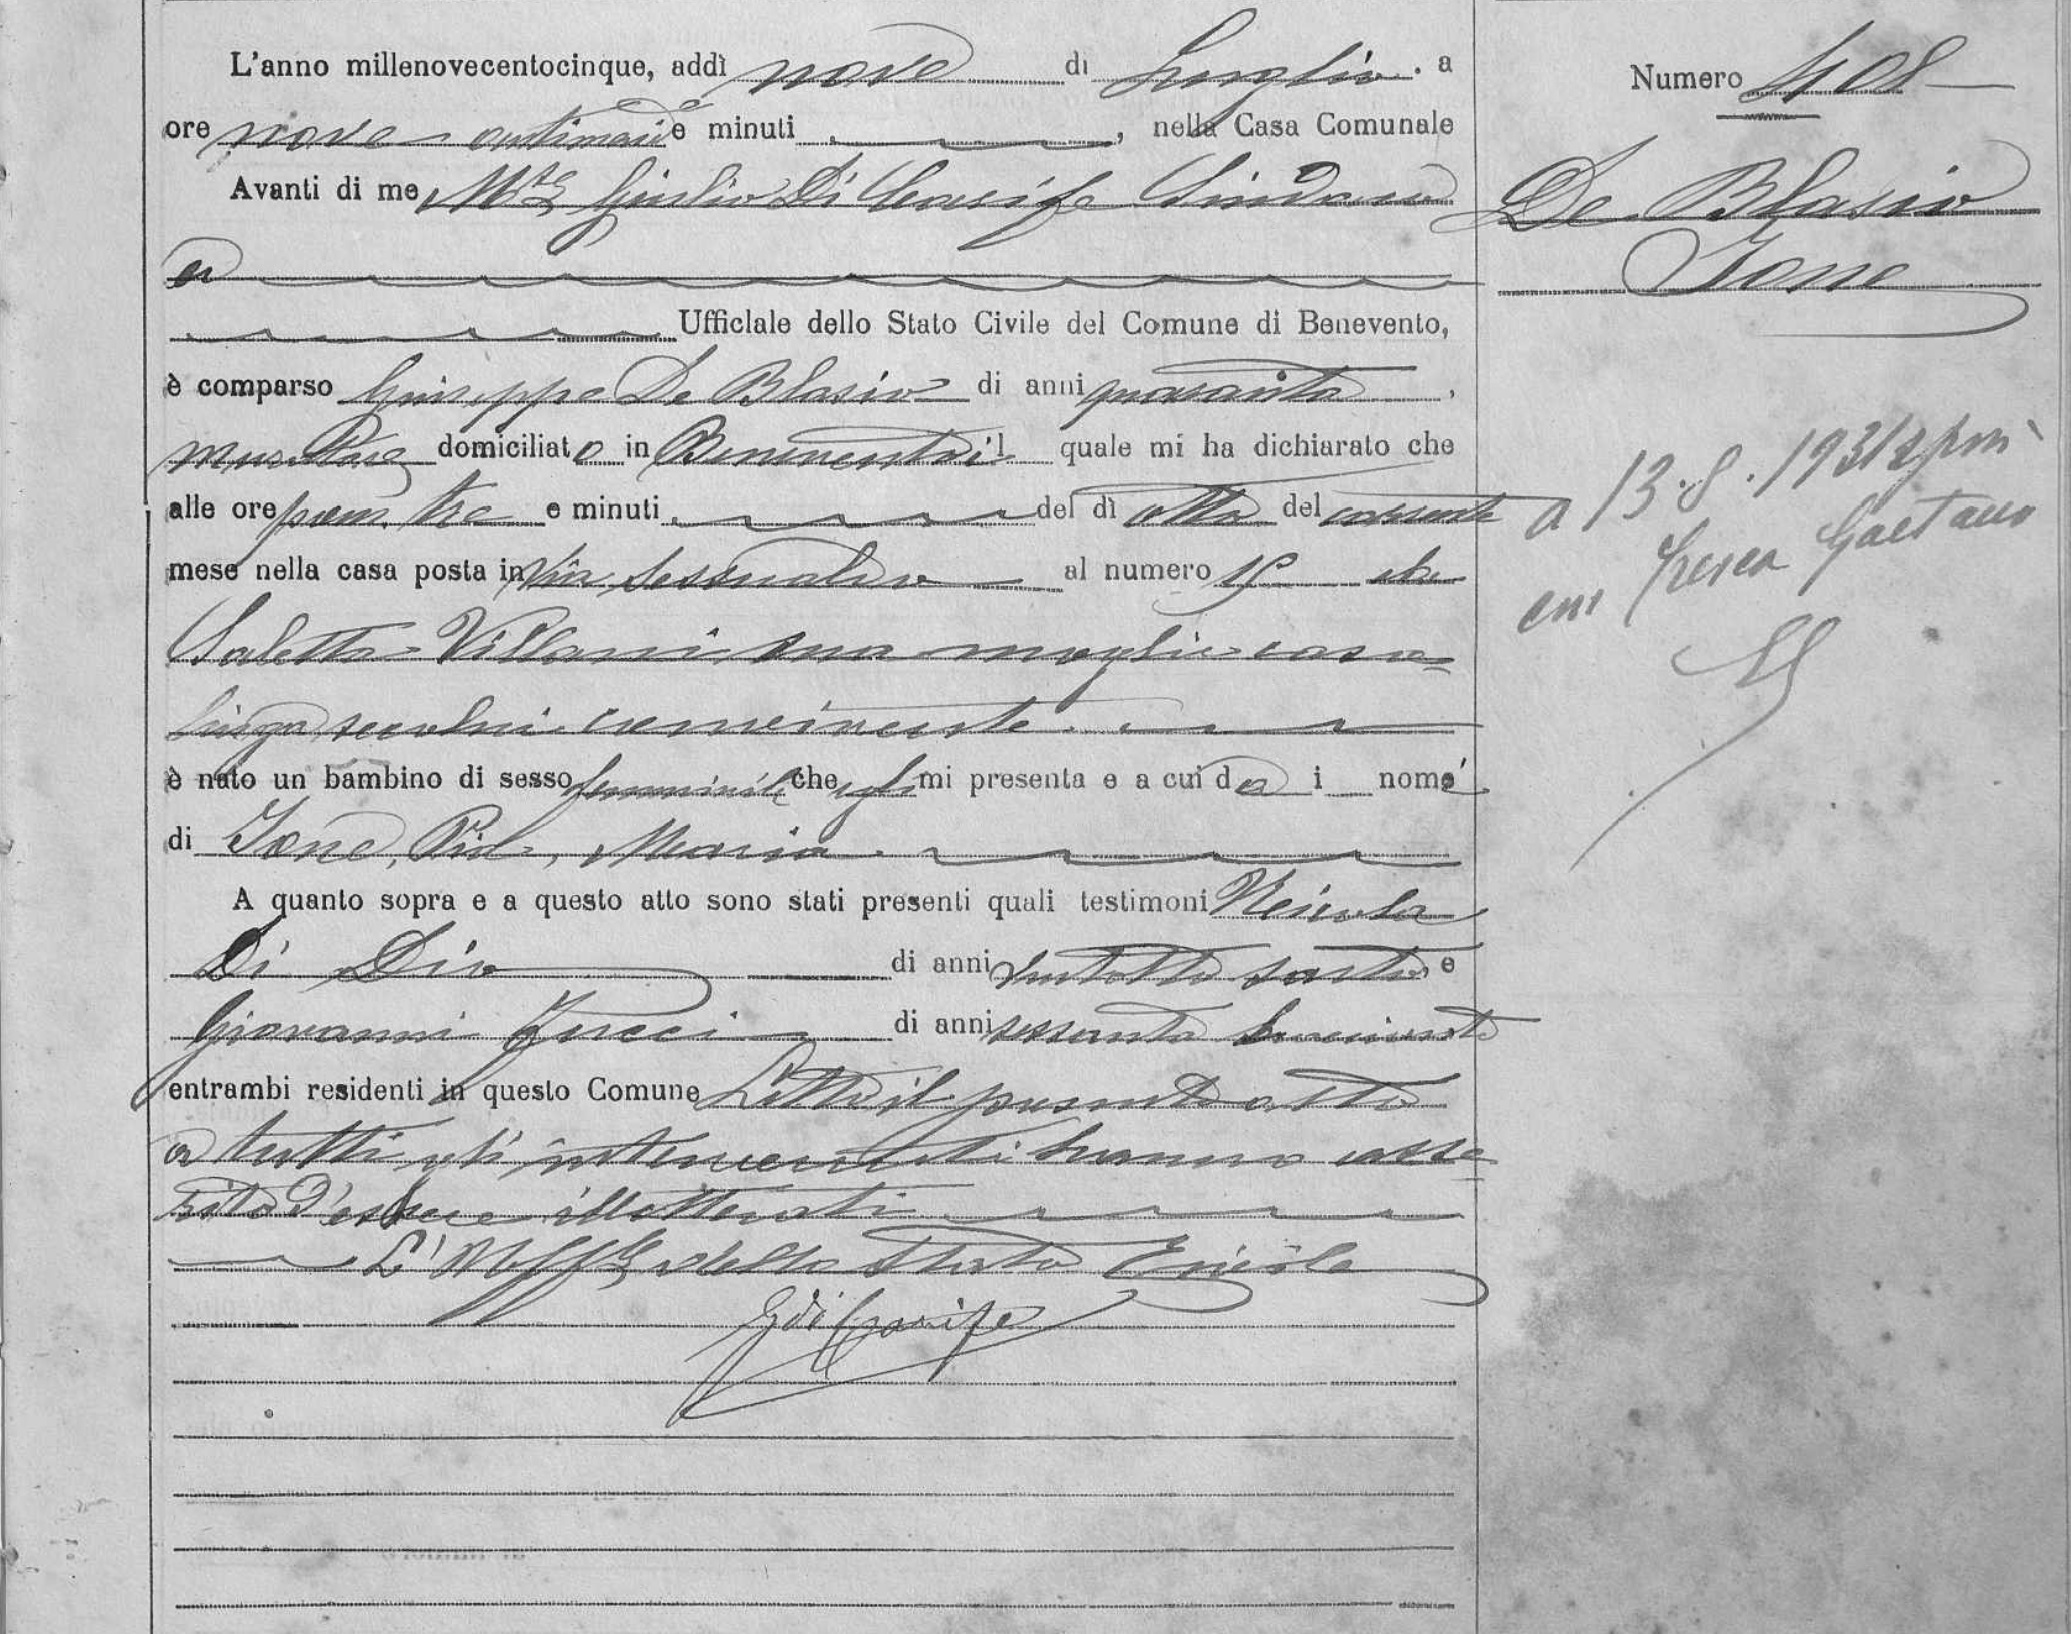 L'anno millenovecentocinque, addì nove di Luglio. a
ore nove antimad e minuti , nella Casa Comunale
Avanti di me Mse Giulio Di Carife Sindaco
Ufficiale dello Stato Civile del Comune di Benevento,
è comparso Giuseppe De Blasio di anni quaranta,
muratore domiciliato in Benevento il quale mi ha dichiarato che
alle ore pom. tre e minuti del dì otto del corrente
mese nella casa posta in Via al numero da
Villani sua moglie casa=
linga seco lui convivente.
è nato un bambino di sesso femminile che egli mi presenta e a cui da i nomi
di Jone, Pia, Maria
A quanto sopra e a questo atto sono stati presenti quali testimoni Nicola
Di Dio di anni sarto e
Giovanni Zucci di anni sessanta
entrambi residenti in questo Comune Letto il presente atto
a tutti gl'intervenuti hanno asse=
rito d'essere illetterati
L'Uffle dello Stato Civile
G di Carife
Numero 408
De Blasio
Jone
a 13.8.931
con Gaetano